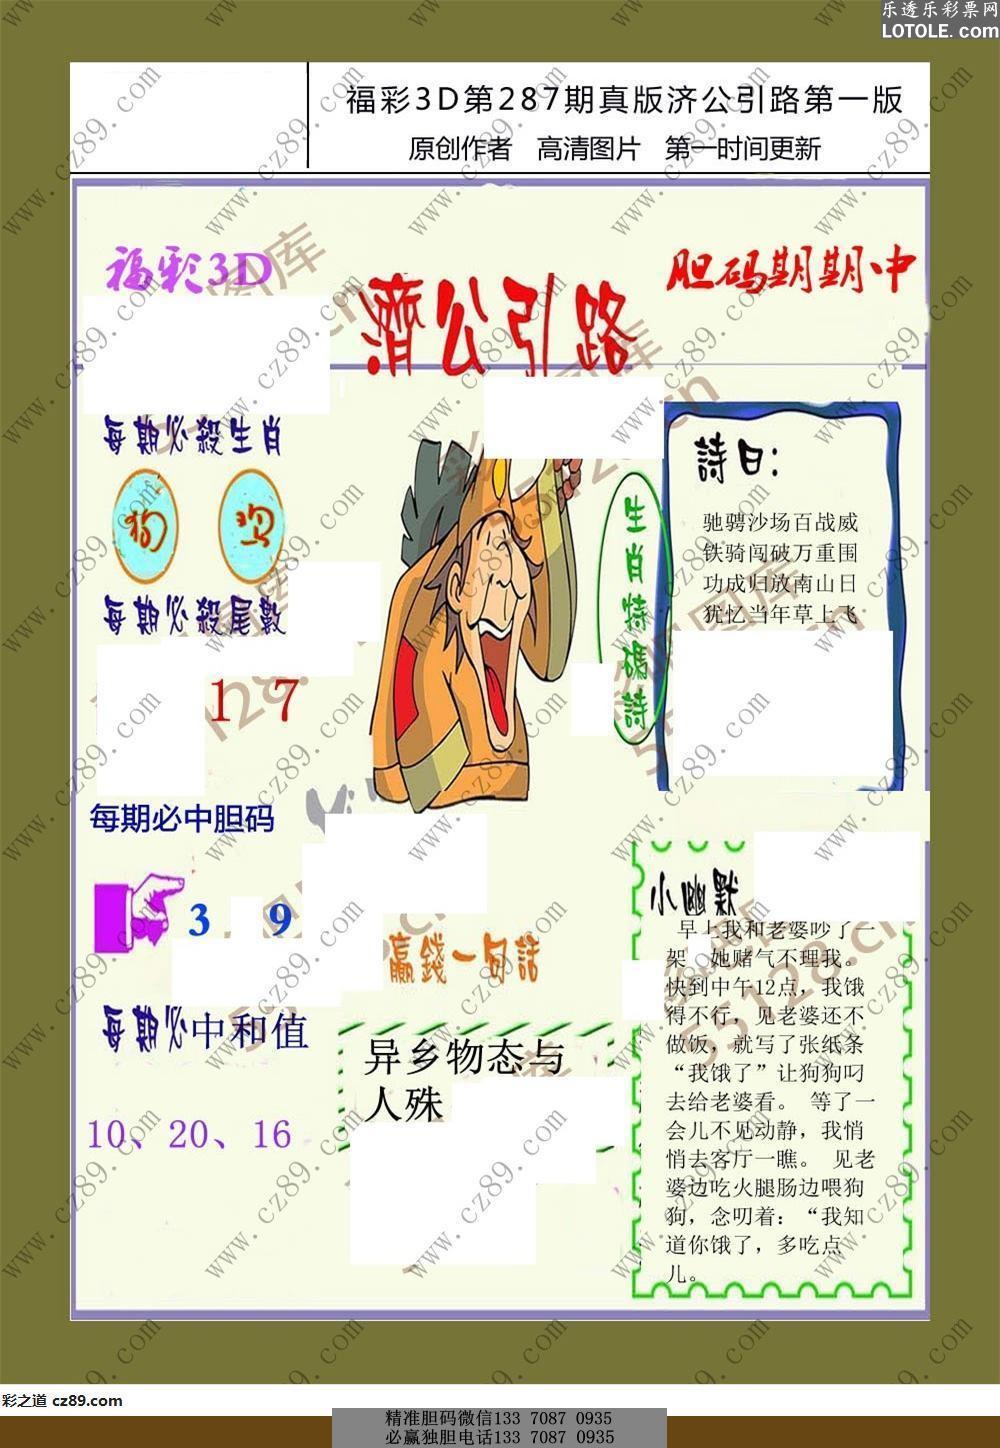 乐透乐彩票网
LOTOLE.com
福彩3D第287期真版济公引路第一版
原创作者 高清图片 第一时间更新
福彩3D
濟公引路
胆码期期中
每期必殺生肖
狗 鸡
每期必殺尾數
1 7
每期必中胆码
3 9
每期必中和值
10、20、16
生肖特碼詩
詩曰：
驰骋沙场百战威
铁骑闯破万重围
功成归放南山日
犹忆当年草上飞
贏錢一句話
异乡物态与
人殊
小幽默
早上我和老婆吵了一
架，她赌气不理我。
快到中午12点，我饿
得不行，见老婆还不
做饭，就写了张纸条
“我饿了”让狗狗叼
去给老婆看。 等了一
会儿不见动静，我悄
悄去客厅一瞧。 见老
婆边吃火腿肠边喂狗
狗，念叨着：“我知
道你饿了，多吃点
儿。
www.cz89.com
彩之道 cz89.com
精准胆码微信133 7087 0935
必赢独胆电话133 7087 0935